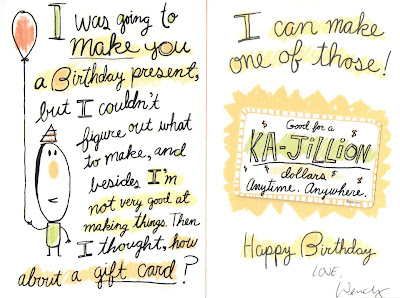 I was going to
make you
a Birthday present,
but I couldn't
figure out what
to make, and
besides I'm
not very good at
making things. Then
I thought, how
about a gift card?
I can make
one of those!
$ $
Good for a
KA-JILLION
dollars
$ $
Anytime. Anywhere.
Happy Birthday
LOVE,
Wendy